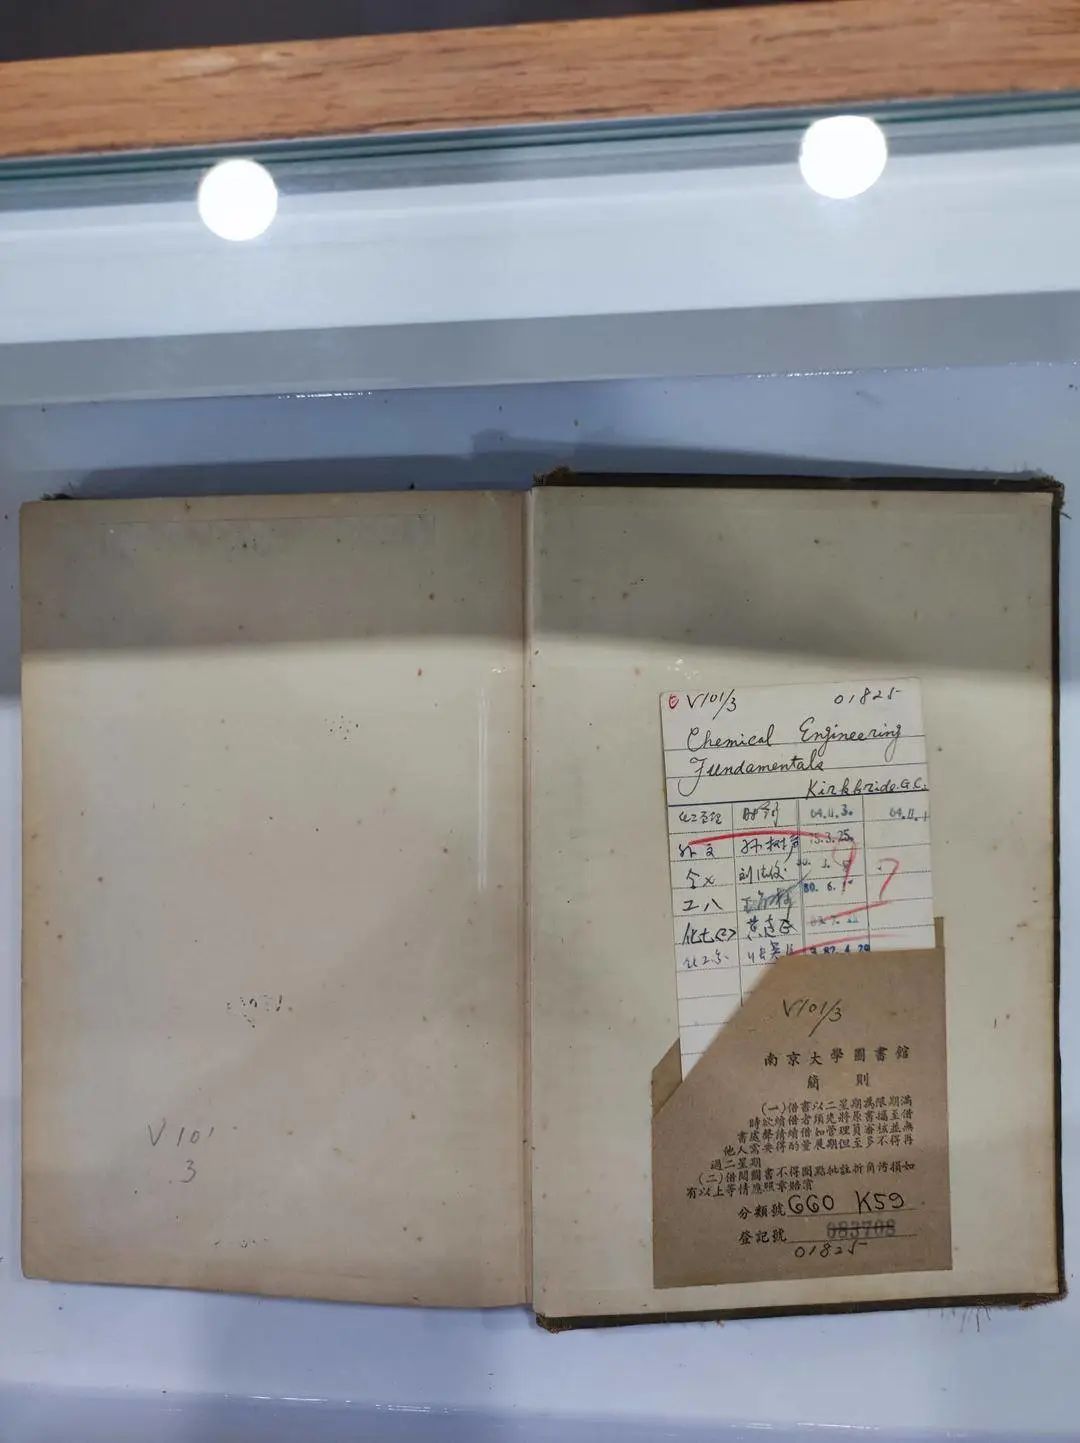 V101
3
V101/3 01825
Chemical Engineering
Fundamentals
Kirkbride. G.C.
64.11.3.
外文 孙树声 3.25.
刘法俊
工八 80.6.
化七
82.4.29
V101/3
南京大學圖書館
簡則
(一)借書以二星期為限期滿
時欲續借者須先將原書攜至借
書處聲請續借如管理員審核並無
他人需要得酌量展期但至多不得再
過二星期
(二)借閱圖書不得圈點批註折角污損如
有以上等情應照章賠償
分類號 660 K59
登記號 083708
01825